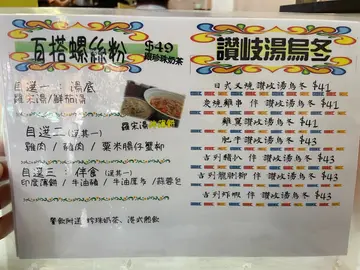 百搭螺絲粉
$49
跟珍珠奶茶
自選一：湯底
羅宋湯/鮮茄湯
羅宋湯螺絲粉
自選二：(選其一)
雞肉 / 豬肉 / 粟米腸伴蟹柳
自選三：伴食(選其一)
印度薄餅 / 牛油豬 / 牛油厚多 / 蒜蓉包
餐飲附送 珍珠奶茶、港式熱飲
讚岐湯烏冬
日式叉燒 讚岐湯烏冬 $41
炭燒雞串 伴 讚岐湯烏冬 $43
雞翼讚岐湯烏冬 $41
肥牛 讚岐湯烏冬 $43
吉列豬扒 伴 讚岐湯烏冬 $43
吉列龍脷柳 伴 讚岐湯烏冬 $43
吉列炸蝦 伴 讚岐湯烏冬 $43